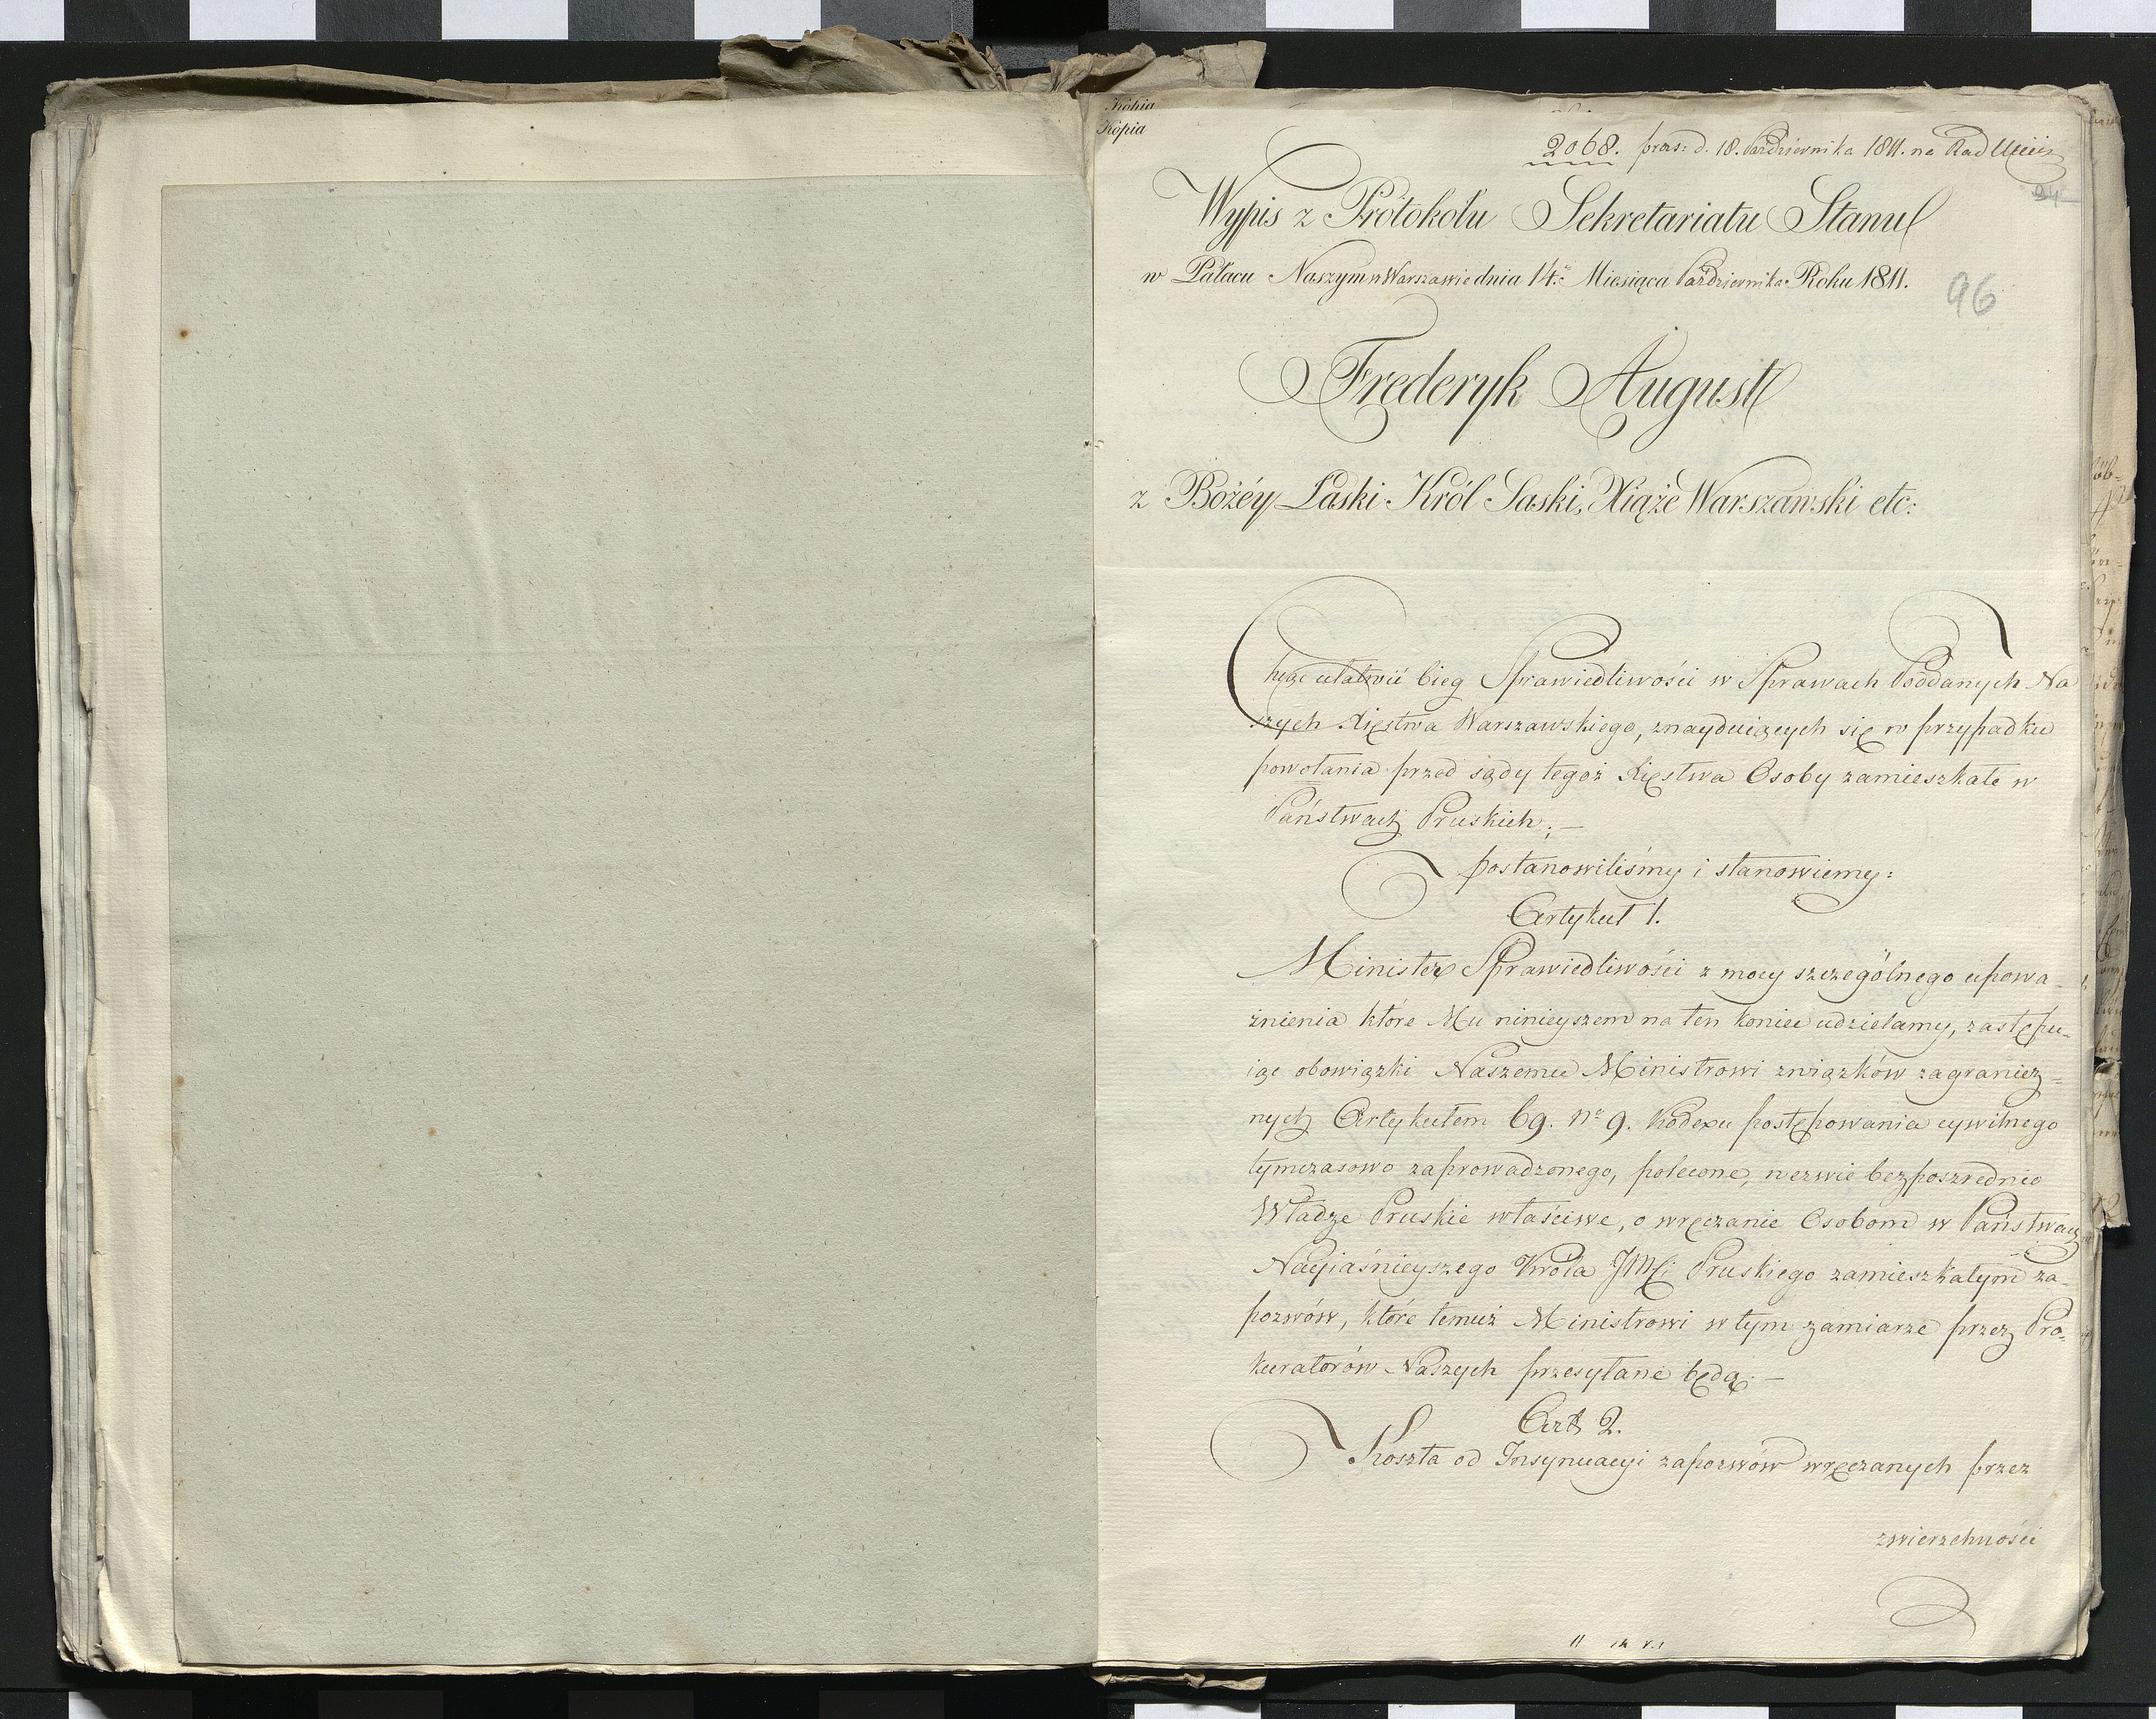 Kopia
Kopia
2068. præs: d. 18. Października 1811. na Rad
94
Wypis z Protokołu Sekretariatu Stanu
w Pałacu Naszym w Warszawie dnia 14. Miesiąca Października Roku 1811.
96
Frederyk August
z Bożéy Łaski Król Saski, Xiąże Warszawski etc:
Chcąc ułatwić bieg Sprawiedliwości w Sprawach Poddanych Na
szych Xięstwa Warszawskiego, znayduiących się w przypadku
powołania przed sądy tegoż Xięstwa Osoby zamieszkałe w
Państwach Pruskich; —
postanowiliśmy i stanowiemy:
Artykuł 1.
Minister Sprawiedliwości z mocy szczególnego upowa-
żnienia które Mu ninieyszem na ten koniec udzielamy, zastępu-
iąc obowiązki Naszemu Ministrowi związków zagranicz=
nych Artykułem 69. nº 9. Kodexu postępowania cywilnego
tymczasowo zaprowadzonego, polecone, wezwie bezpośrednio
Władze Pruskie właściwe, o wręczanie Osobom w Państwach
Nayiaśnieyszego Króla JMci Pruskiego zamieszkałym za-
pozwów, które temuż Ministrowi w tym zamiarze przez Pro-
kuratorów Naszych przesyłane będą. —
Art. 2.
Koszta od Insynuacyi zapozwów wręczanych przez
zwierzchności